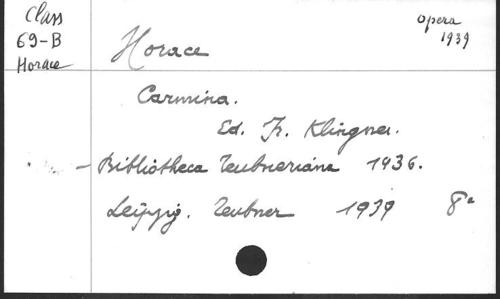 Class
69-B
Horace
opera
1939
Horace
Carmina.
Ed. Fr. Klingner.
- Bibliotheca Teubneriana 1936.
Leipzig. Teubner 1939 8°